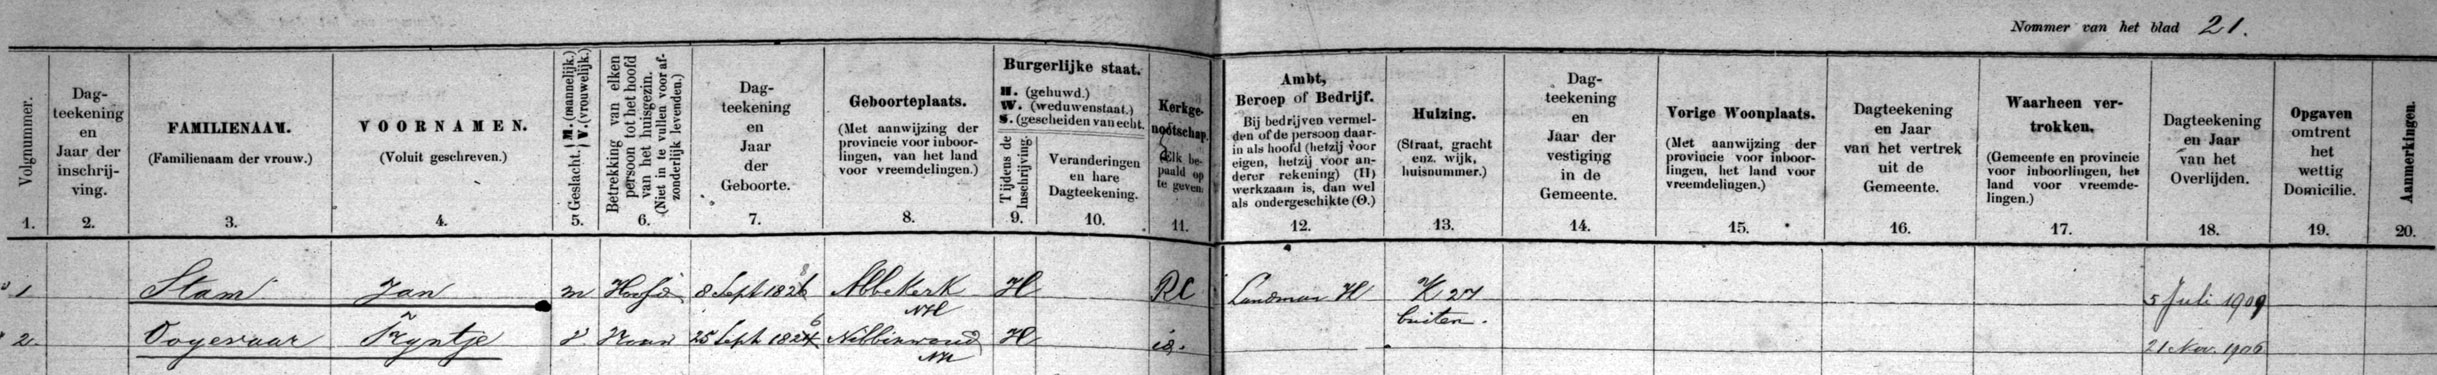 Nommer van het blad 21.
Volgnummer.
1.
Dag-
teekening
en
Jaar der
inschrij-
ving.
2.
FAMILIENAAM.
(Familienaam der vrouw.)
3.
VOORNAMEN.
(Voluit geschreven.)
4.
Geslacht. M. (mannelijk.) V. (vrouwelijk.)
5.
Betrekking van elken
persoon tot het hoofd
van het huisgezin.
(Niet in te vullen voor af-
zonderlijk levenden.)
6.
Dag-
teekening
en
Jaar
der
Geboorte.
7.
Geboorteplaats.
(Met aanwijzing der
provincie voor inboor-
lingen, van het land
voor vreemdelingen.)
8.
Burgerlijke staat.
H. (gehuwd.)
W. (weduwenstaat.)
S. (gescheiden van echt.
Tijdens de
Inschrijving.
9.
Veranderingen
en hare
Dagteekening.
10.
Kerkge-
nootschap.
(Elk be-
paald op
te geven.
11.
Ambt,
Beroep of Bedrijf.
Bij bedrijven vermel-
den of de persoon daar-
in als hoofd (hetzij voor
eigen, hetzij voor an-
derer rekening) (H)
werkzaam is, dan wel
als ondergeschikte (O.)
12.
Huizing.
(Straat, gracht
enz. wijk,
huisnummer.)
13.
Dag-
teekening
en
Jaar der
vestiging
in de
Gemeente.
14.
Vorige Woonplaats.
(Met aanwijzing der
provincie voor inboor-
lingen, het land voor
vreemdelingen.)
15.
Dagteekening
en Jaar
van het vertrek
uit de
Gemeente.
16.
Waarheen ver-
trokken.
(Gemeente en provincie
voor inboorlingen, het
land voor vreemde-
lingen.)
17.
Dagteekening
en Jaar
van het
Overlijden.
18.
Opgaven
omtrent
het
wettig
Domicilie.
19.
Aanmerkingen.
20.
1 Stam Jan m Hoofd 8 Sept 1828 Abbekerk H RC Landman H K 27 5 Juli 1909
NH buiten.
2. Oogevaar Trijntje v Vrouw 25 Sept 1826 Nibbixwoud H id. 21 Nov. 1906
NH